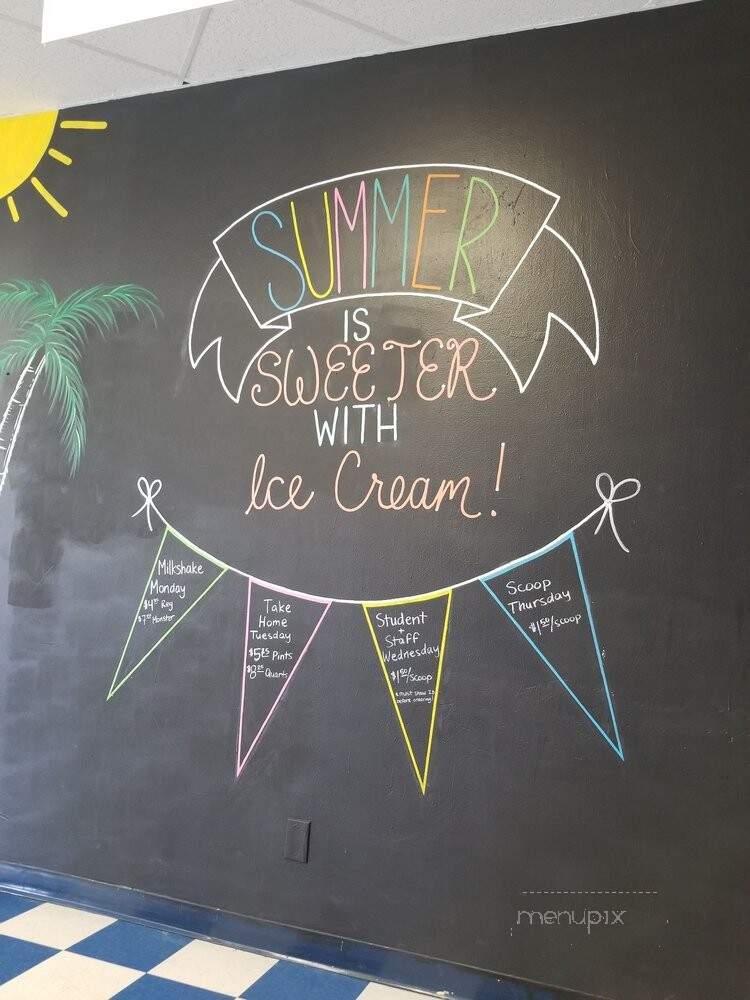 SUMMER
IS
SWEETER
WITH
Ice Cream!
Milkshake
Monday
Reg
Monster
Take
Home
Tuesday
Pints
Quarts
Student
+
Staff
Wednesday
$1.50/scoop
*Must show ID
before ordering!
Scoop
Thursday
$1.50/scoop
menupix